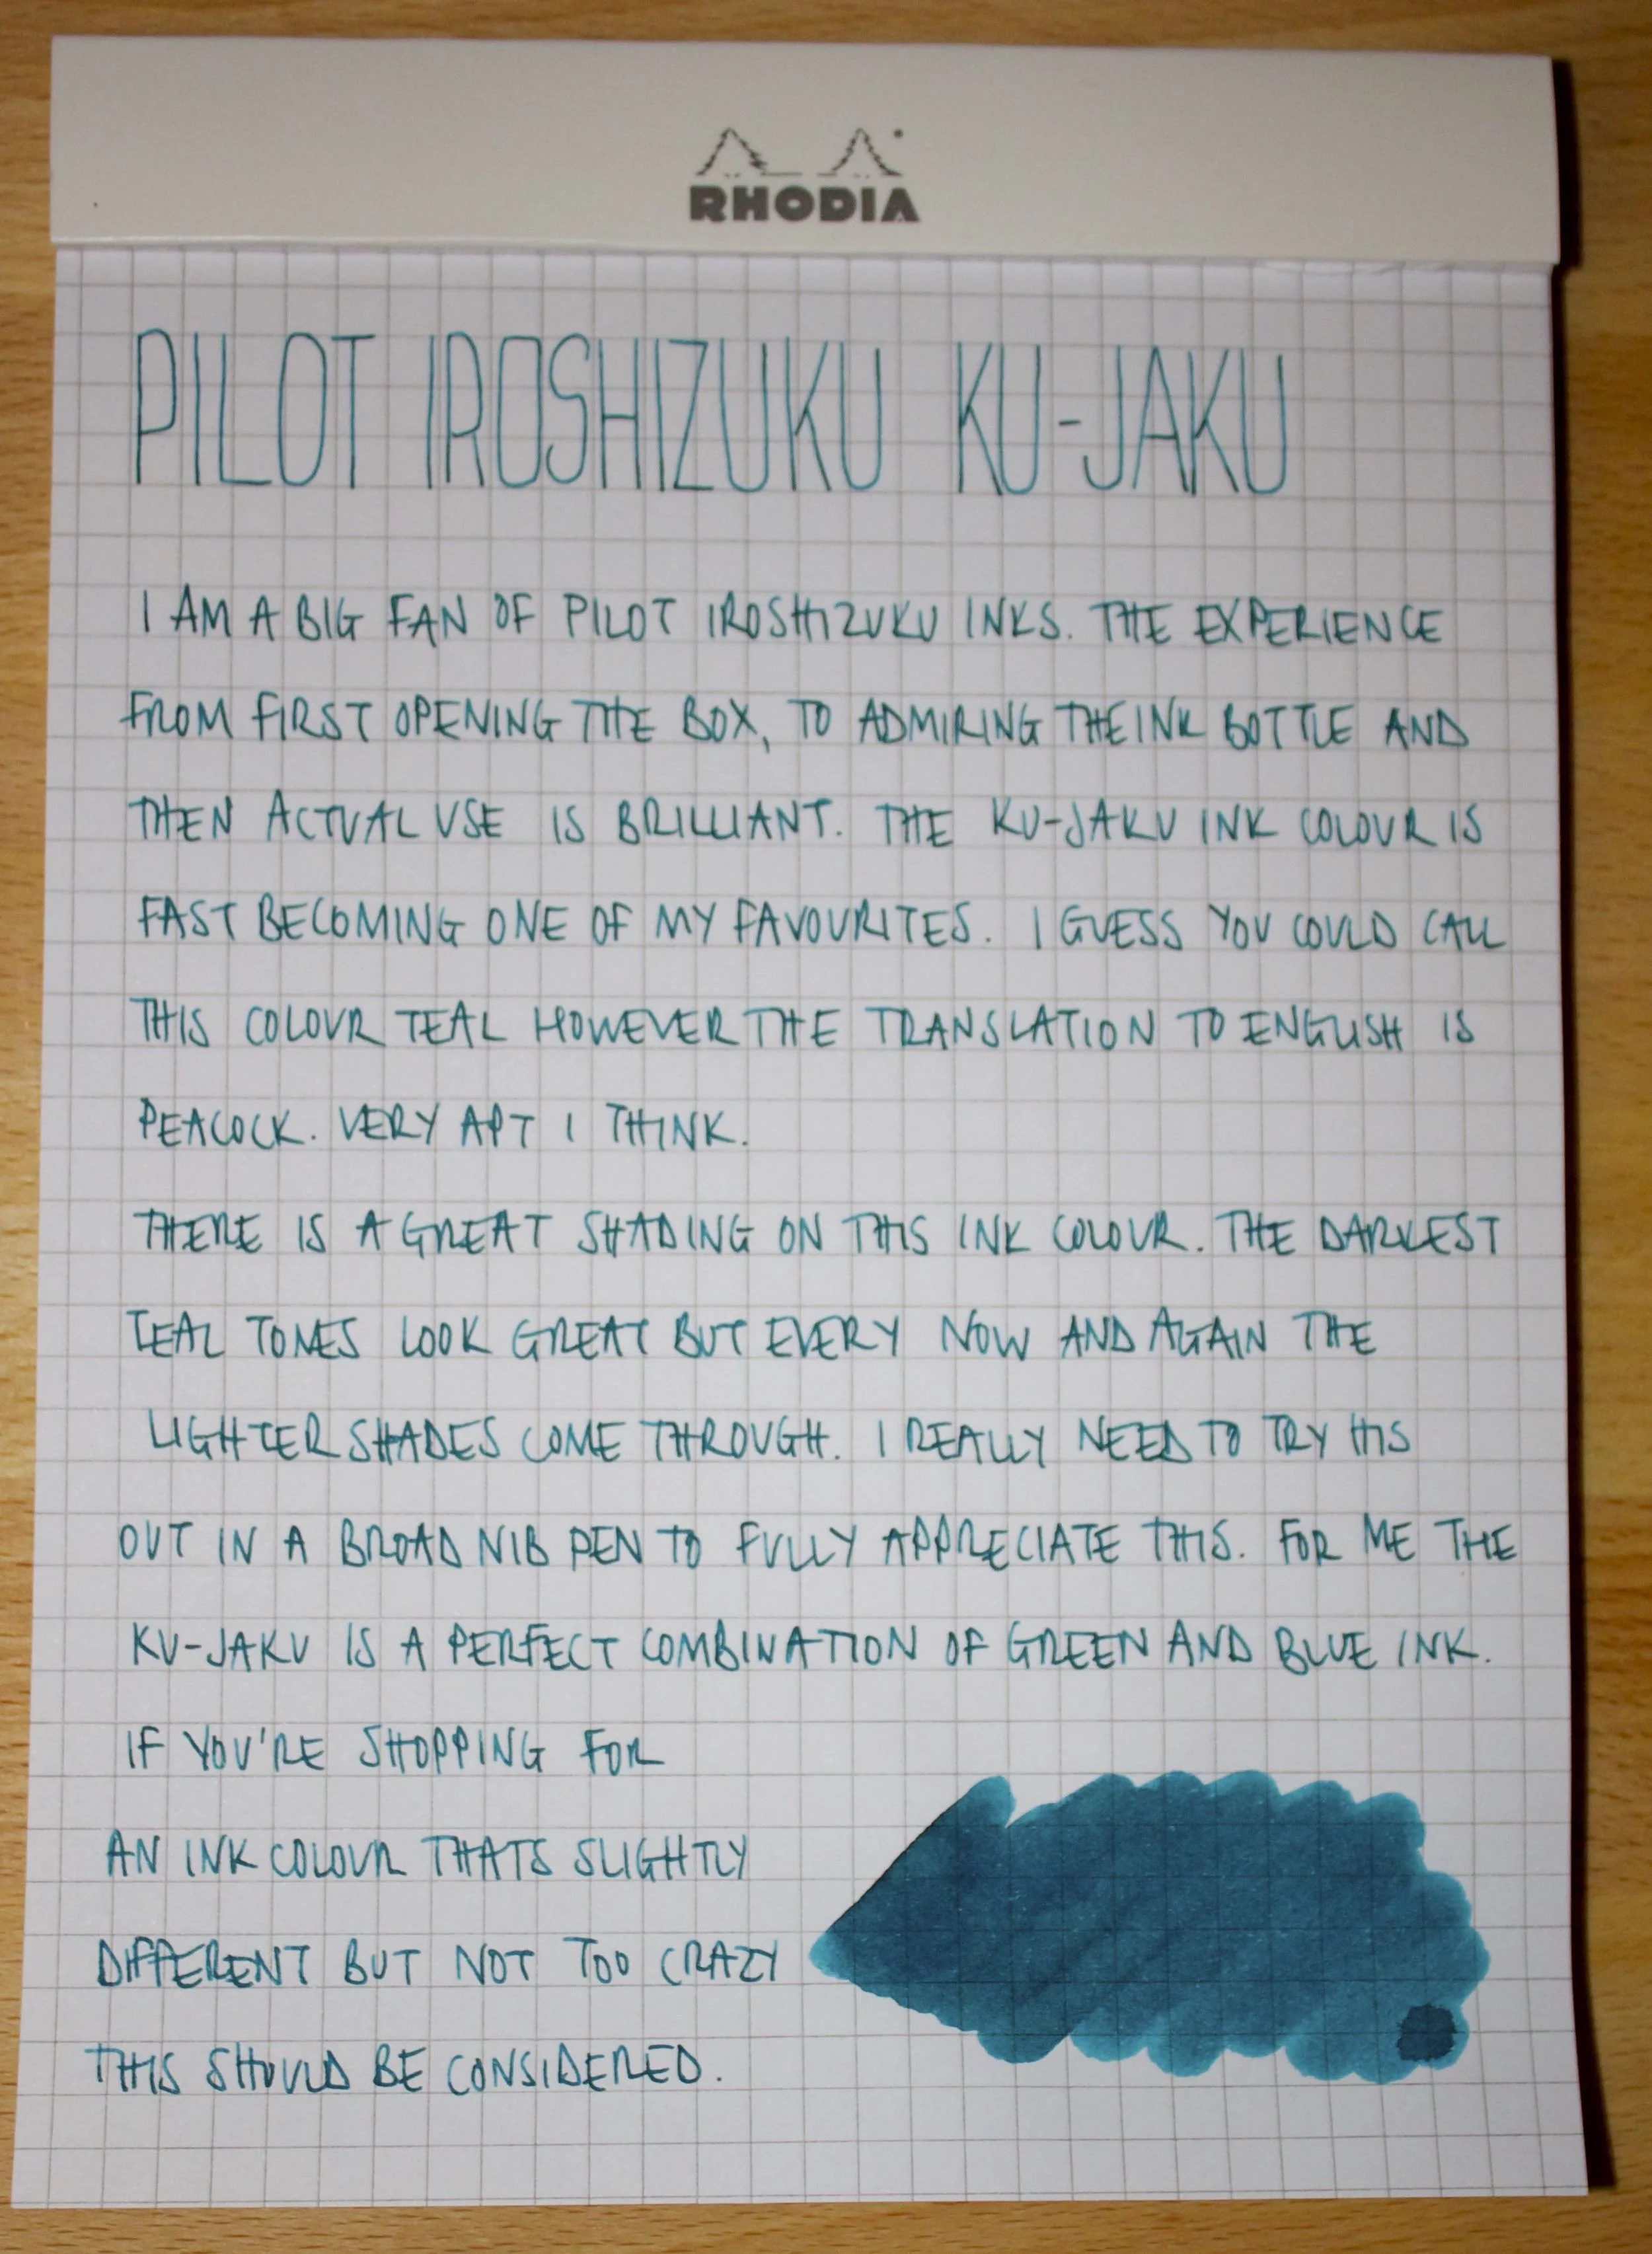 RHODIA
PILOT IROSHIZUKU KU-JAKU
I AM A BIG FAN OF PILOT IROSHIZUKU INKS. THE EXPERIENCE
FROM FIRST OPENING THE BOX, TO ADMIRING THE INK BOTTLE AND
THEN ACTUAL USE IS BRILLIANT. THE KU-JAKU INK COLOUR IS
FAST BECOMING ONE OF MY FAVOURITES. I GUESS YOU COULD CALL
THIS COLOUR TEAL HOWEVER THE TRANSLATION TO ENGLISH IS
PEACOCK. VERY APT I THINK.
THERE IS A GREAT SHADING ON THIS INK COLOUR. THE DARKEST
TEAL TONES LOOK GREAT BUT EVERY NOW AND AGAIN THE
LIGHTER SHADES COME THROUGH. I REALLY NEED TO TRY HIS
OUT IN A BROAD NIB PEN TO FULLY APPRECIATE THIS. FOR ME THE
KU-JAKU IS A PERFECT COMBINATION OF GREEN AND BLUE INK.
IF YOU'RE SHOPPING FOR
AN INK COLOUR THATS SLIGHTLY
DIFFERENT BUT NOT TOO CRAZY
THIS SHOULD BE CONSIDERED.